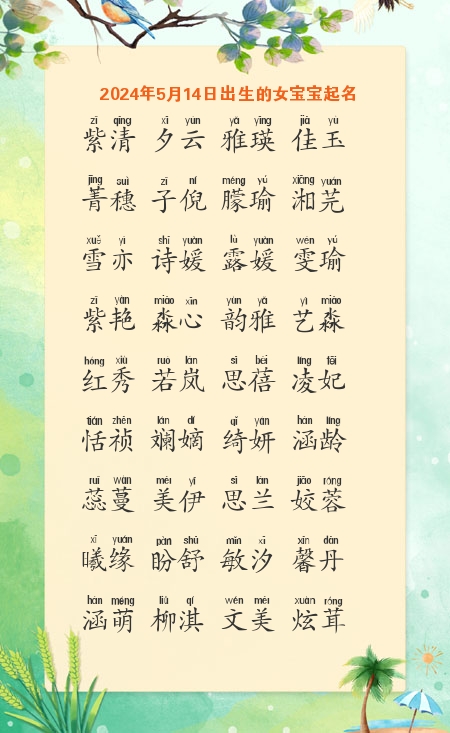 2024年5月14日出生的女宝宝起名
zǐ qīng xī yún yǎ yīng jiā yù
紫清 夕云 雅瑛 佳玉
jīng suì zǐ ní méng yú xiāng yuán
菁穗 子倪 朦瑜 湘芫
xuě yì shī yuàn lù yuàn wén yú
雪亦 诗媛 露媛 雯瑜
zǐ yàn miǎo xīn yùn yǎ yì miǎo
紫艳 淼心 韵雅 艺淼
hóng xiù ruò lán sī bèi líng fēi
红秀 若岚 思蓓 凌妃
tián zhēn lán dí qǐ yán hán líng
恬祯 斓嫡 绮妍 涵龄
ruǐ wàn měi yī sī lán jiāo róng
蕊蔓 美伊 思兰 姣蓉
xī yuán pàn shū mǐn xī xīn dān
曦缘 盼舒 敏汐 馨丹
hán méng liǔ qí wén měi xuàn róng
涵萌 柳淇 文美 炫茸